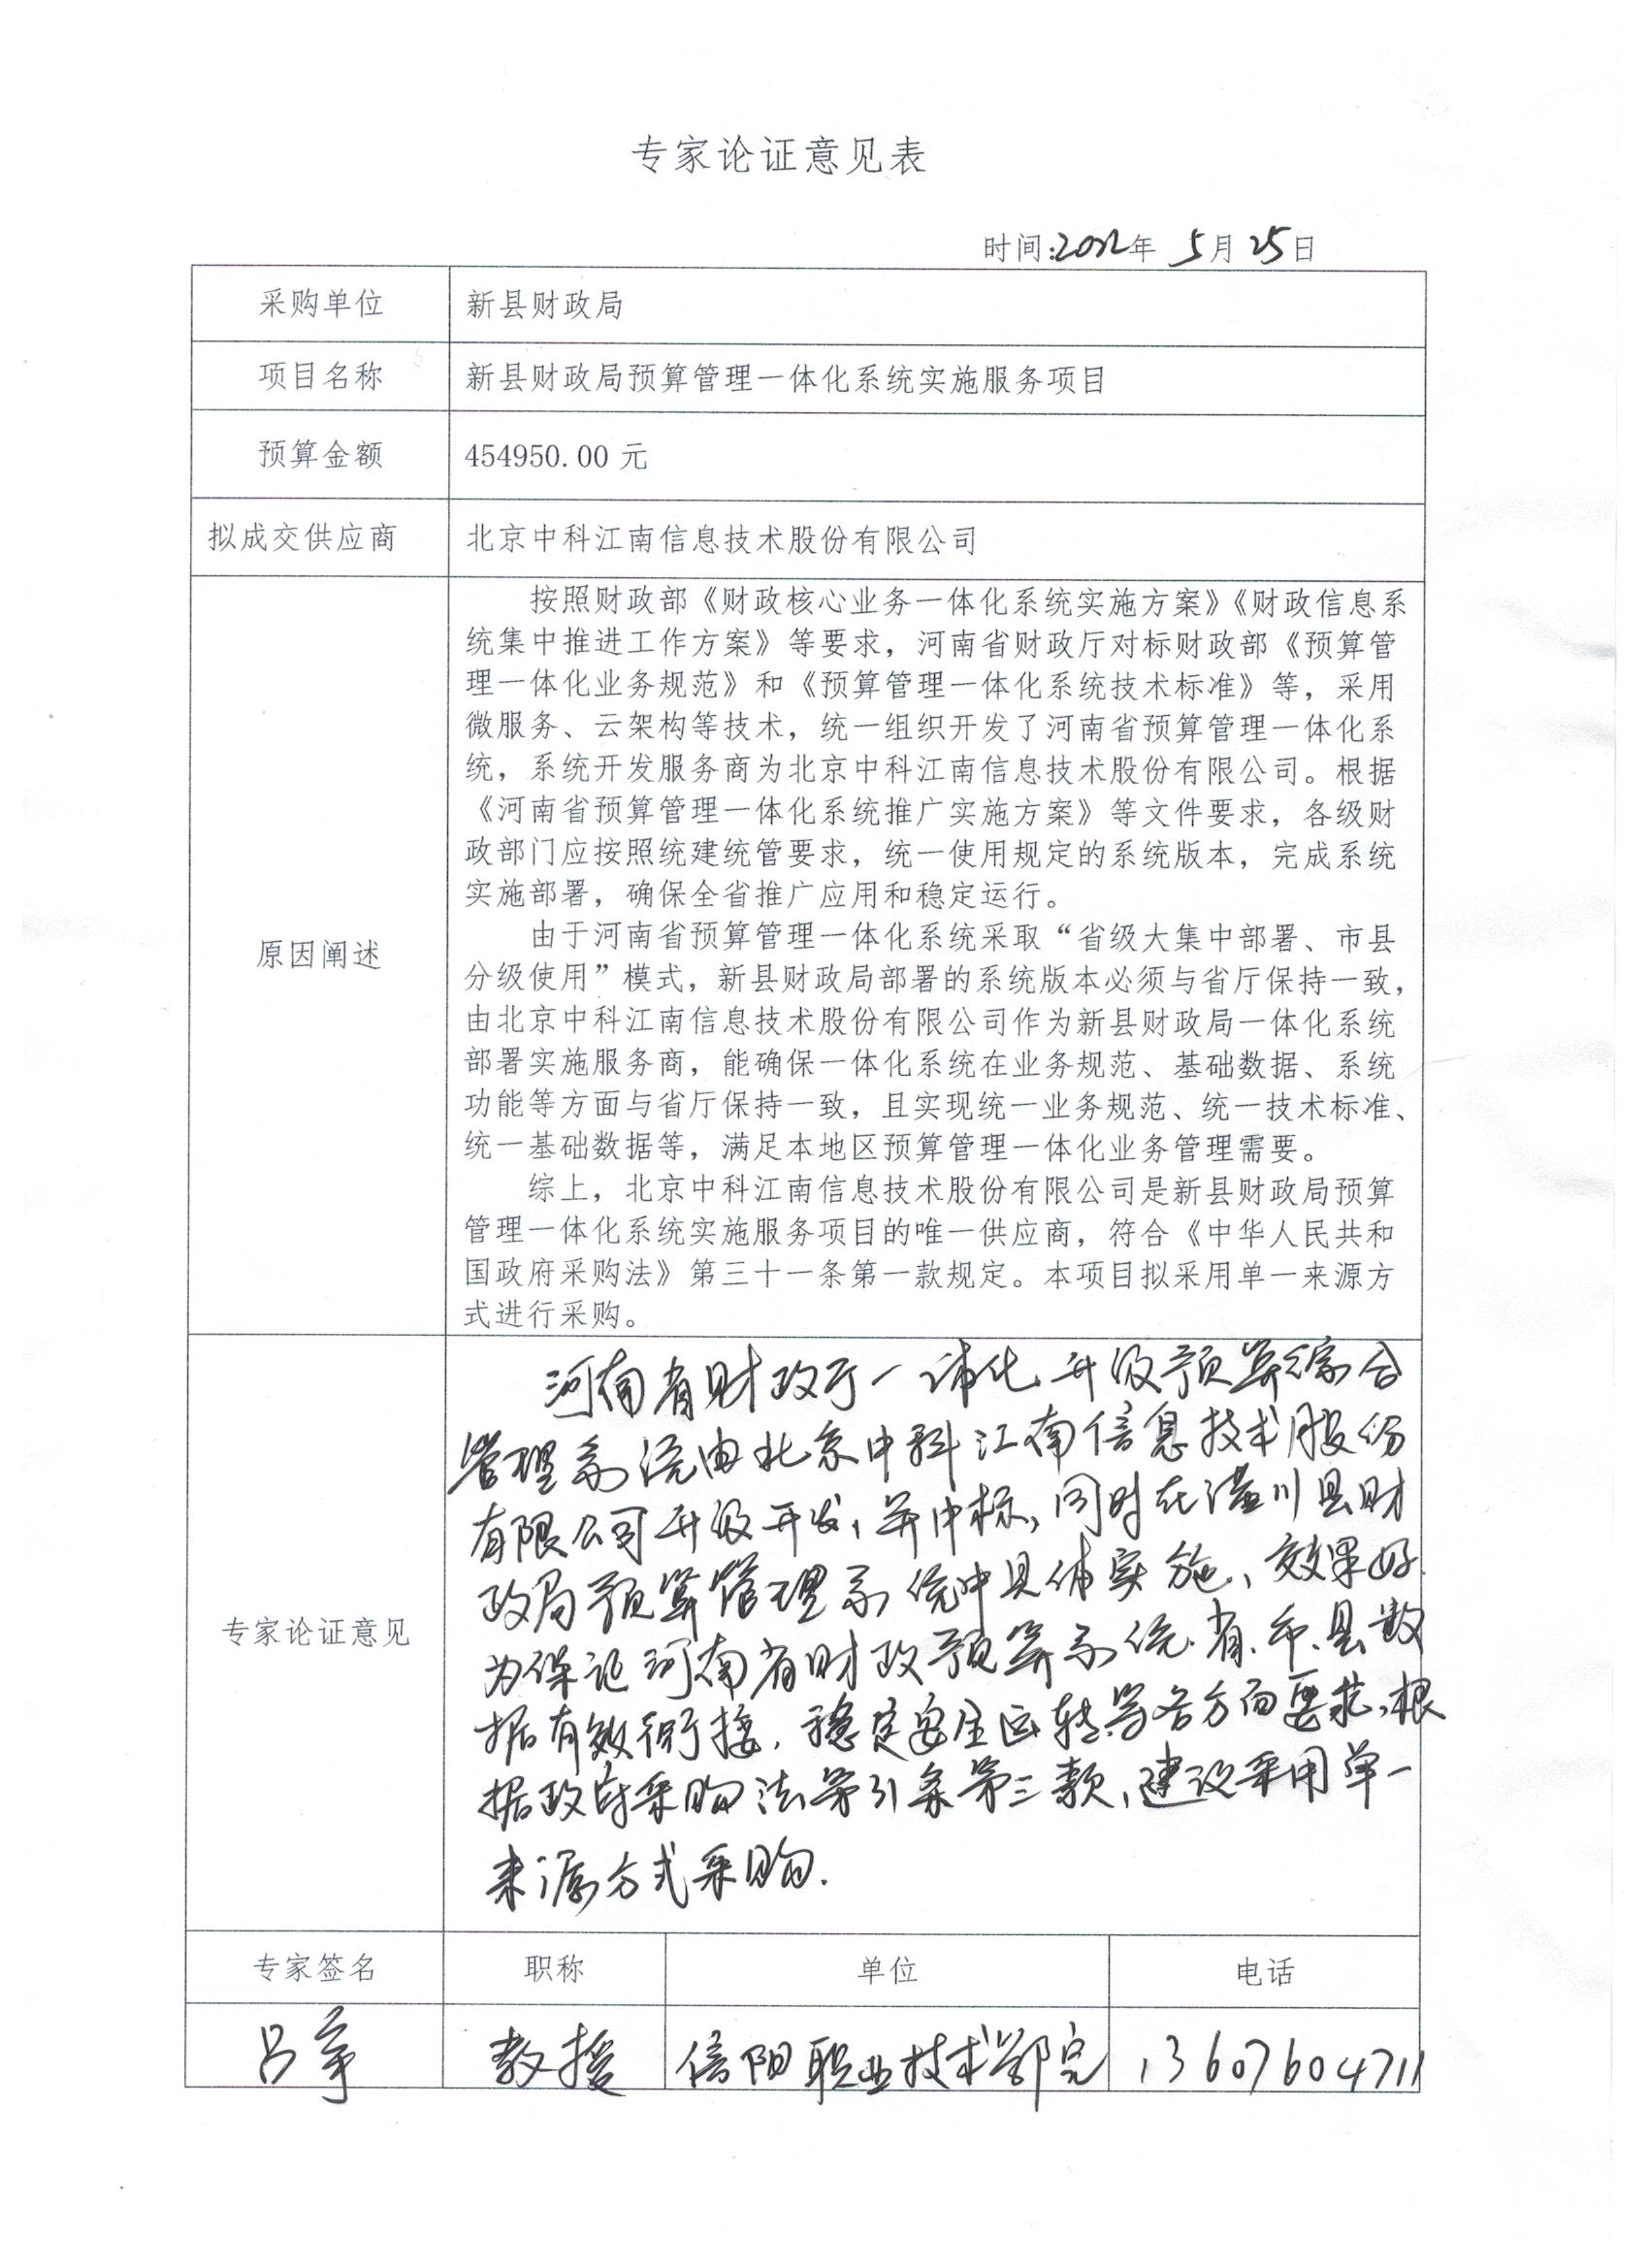 专家论证意见表
时间:2022年 5月25日
采购单位 新县财政局
项目名称 新县财政局预算管理一体化系统实施服务项目
预算金额 454950.00 元
拟成交供应商 北京中科江南信息技术股份有限公司
原因阐述
按照财政部《财政核心业务一体化系统实施方案》《财政信息系
统集中推进工作方案》等要求，河南省财政厅对标财政部《预算管
理一体化业务规范》和《预算管理一体化系统技术标准》等，采用
微服务、云架构等技术，统一组织开发了河南省预算管理一体化系
统，系统开发服务商为北京中科江南信息技术股份有限公司。根据
《河南省预算管理一体化系统推广实施方案》等文件要求，各级财
政部门应按照统建统管要求，统一使用规定的系统版本，完成系统
实施部署，确保全省推广应用和稳定运行。
由于河南省预算管理一体化系统采取“省级大集中部署、市县
分级使用”模式，新县财政局部署的系统版本必须与省厅保持一致，
由北京中科江南信息技术股份有限公司作为新县财政局一体化系统
部署实施服务商，能确保一体化系统在业务规范、基础数据、系统
功能等方面与省厅保持一致，且实现统一业务规范、统一技术标准、
统一基础数据等，满足本地区预算管理一体化业务管理需要。
综上，北京中科江南信息技术股份有限公司是新县财政局预算
管理一体化系统实施服务项目的唯一供应商，符合《中华人民共和
国政府采购法》第三十一条第一款规定。本项目拟采用单一来源方
式进行采购。
专家论证意见
河南省财政厅一体化升级预算综合
管理系统由北京中科江南信息技术股份
有限公司升级开发，并中标，同时在潢川县财
政局预算管理系统中具体实施，效果好.
为保证河南省财政预算系统省、市、县数
据有效衔接，稳定安全运转等各方面要求，根
据政府采购法第31条第三款，建议采用单一
来源方式采购.
专家签名 职称 单位 电话
吕争 教授 信阳职业技术学院 13607604711